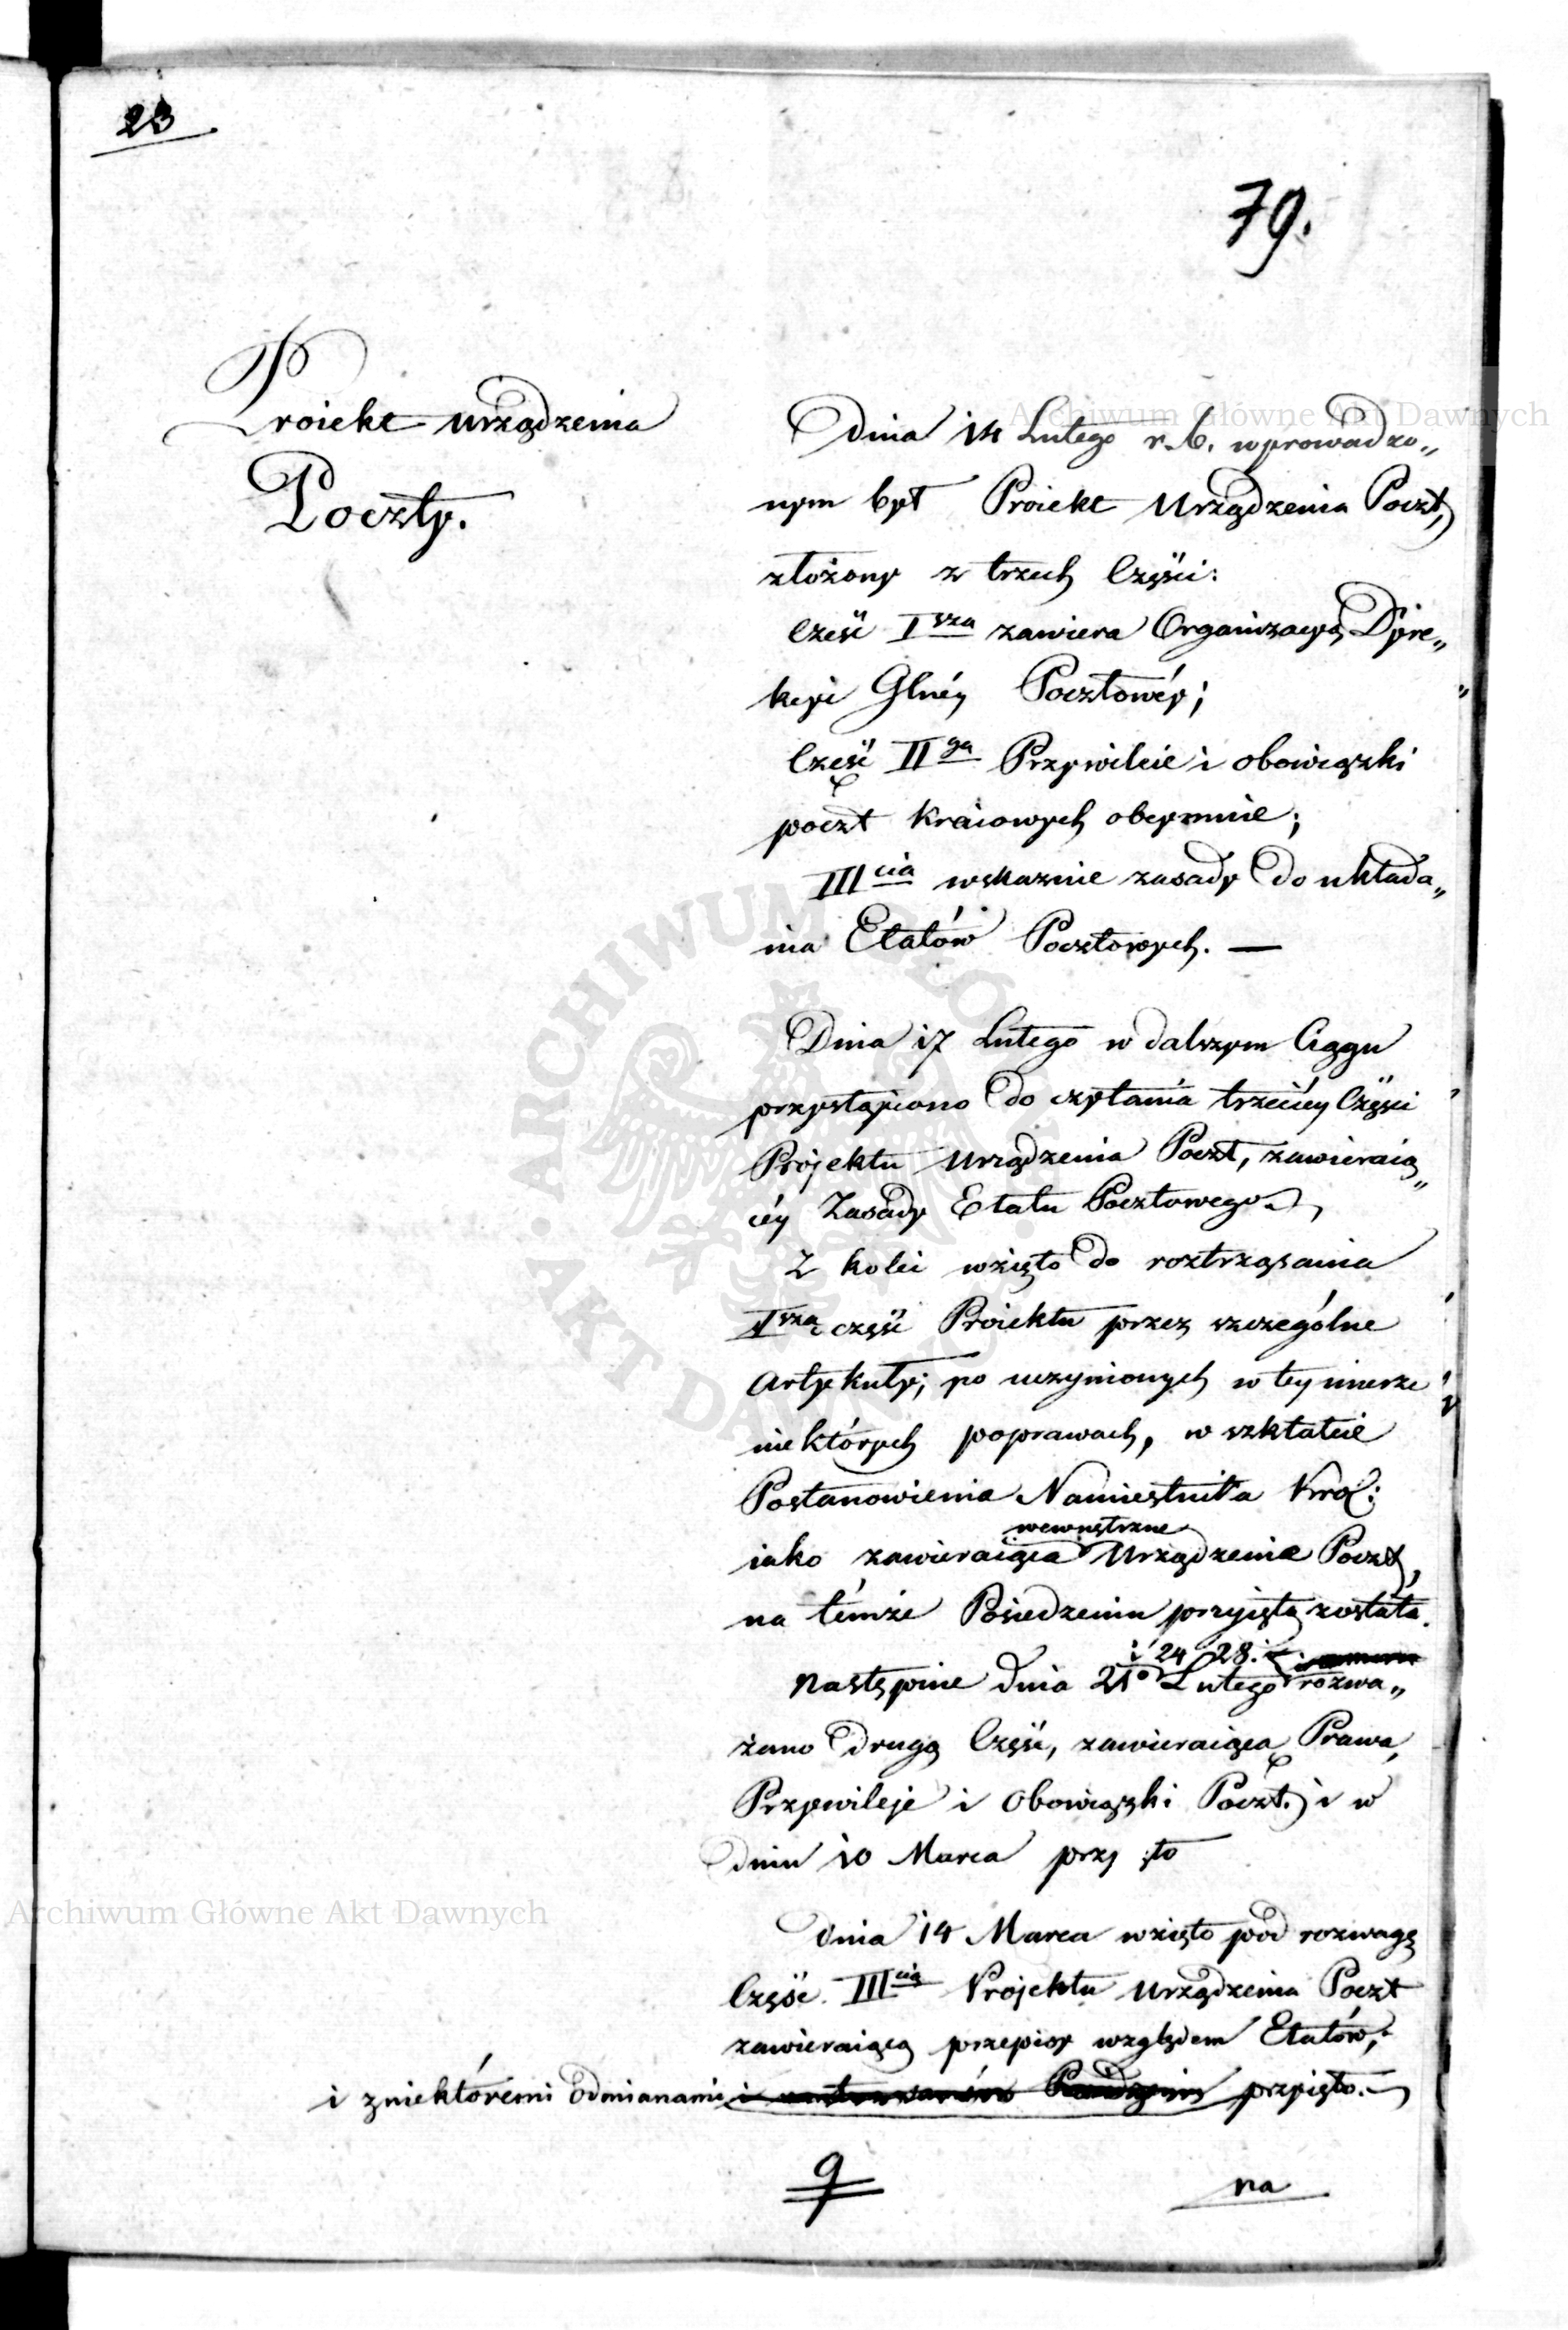 23
79.
Proiekt urządzenia
Poczty.
Dnia 14 Lutego r. b. wprowadzo„
nym był Proiekt Urządzenia Poczt,
złożony z trzech Części:
Część I sza zawiera Organizacyą Dyre„
kcyi Głnéy Pocztowéy;
Część II ga Przywileie i obowiązki
poczt kraiowych obeymuie;
III cia wskazuie zasady do układa„
nia Etatów Pocztowych. —
Dnia 17 Lutego w dalszym Ciągu
przystąpiono do czytania trzeciéy Części
Projektu Urządzenia Poczt, zawieraią„
céy Zasady Etatu Pocztowego.
Z kolei wzięto do roztrząsania
I szą część Proiektu przez szczególne
Artykuły; po uczynionych w tey mierze
niektórych poprawach, w kształcie
Postanowienia Namiestnika Król:
wewnętrzne
iako zawieraiąca Urządzenie Poczt,
na témże Posiedzeniu przyięta została.
i 24 28.
Następnie dnia 21º Lutego rozwa„
żano drugą Część, zawieraiącą Prawa,
Przywileje i Obowiązki Poczt. i w
dniu 10 Marca przyięto
Dnia 14 Marca wzięto pod rozwagę
Część III cią Projektu Urządzenia Poczt
zawieraiącą przepisy względem Etatów,
i z niektóremi odmianami przyięto.
9
na
Archiwum Główne Akt Dawnych
Archiwum Główne Akt Dawnych
ARCHIWUM GŁÓWNE AKT DAWNYCH